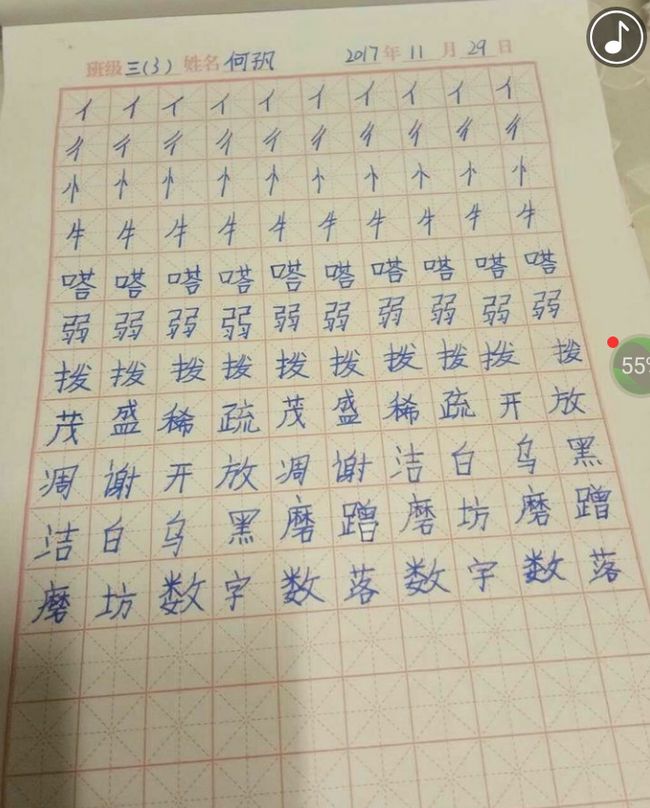 班级 三(3) 姓名 何飒 2017年 11月 29日
亻亻亻亻亻亻亻亻亻亻
彳彳彳彳彳彳彳彳彳彳
忄忄忄忄忄忄忄忄忄忄
牜牜牜牜牜牜牜牜牜牜
嗒嗒嗒嗒嗒嗒嗒嗒嗒嗒
弱弱弱弱弱弱弱弱弱弱
拨拨拨拨拨拨拨拨拨拨
茂盛稀疏茂盛稀疏开放
凋谢开放凋谢洁白乌黑
洁白乌黑磨蹭磨坊磨蹭
磨坊数字数落数字数落
55%